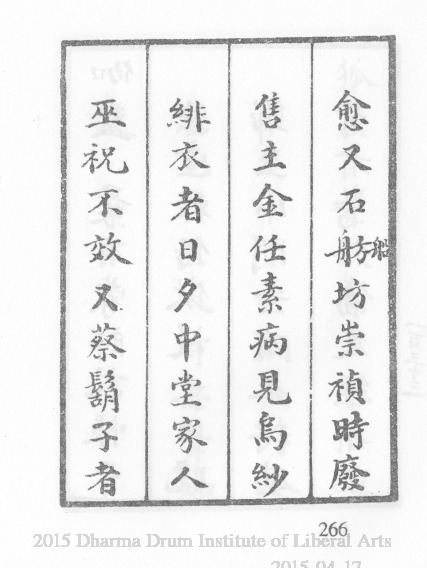 愈又石舫船坊崇禎時廢
售主金任素病見烏紗
緋衣者日夕中堂家人
巫祝不效又蔡鬍子者
266
2015 Dharma Drum Institute of Liberal Arts
2015.04.17